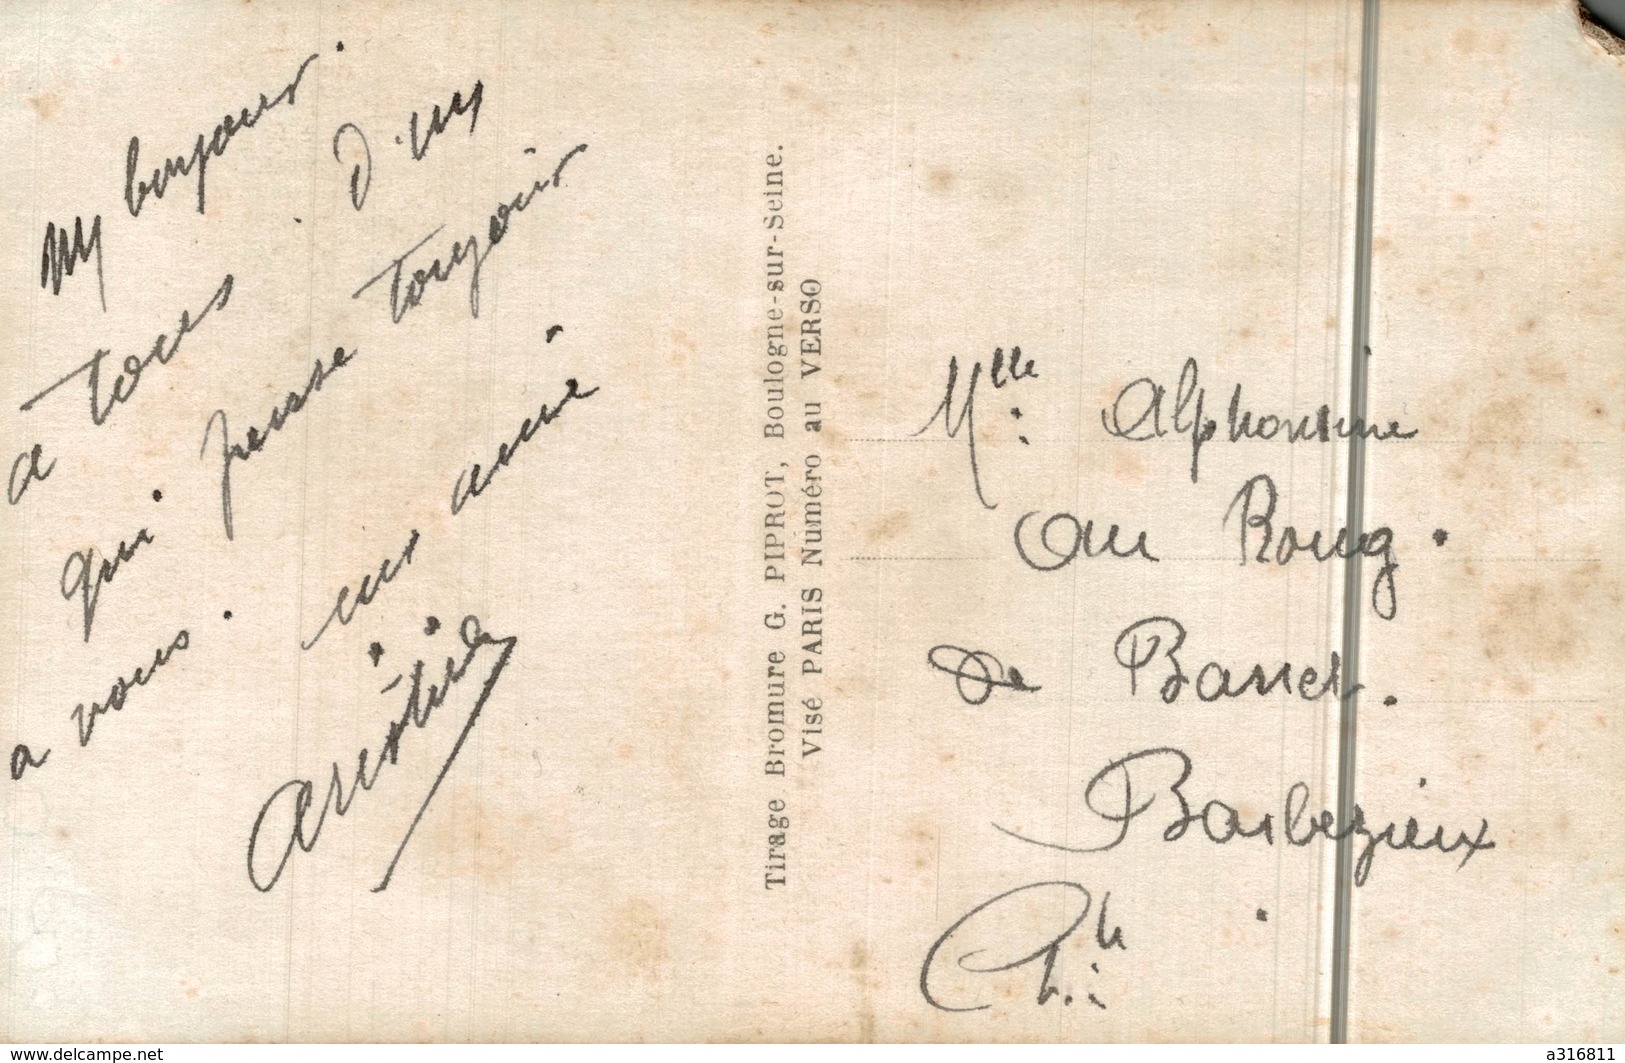 un bonjour.
a tous. D'un
qui pensse toujour
a vous. un ami
Tirage Bromure G. PIPROT, Boulogne-sur-Seine.
Visé PARIS Numéro au VERSO
Mlle Alphonsine
au Roug.
de
Barbezieux
www.delcampe.net
a316811